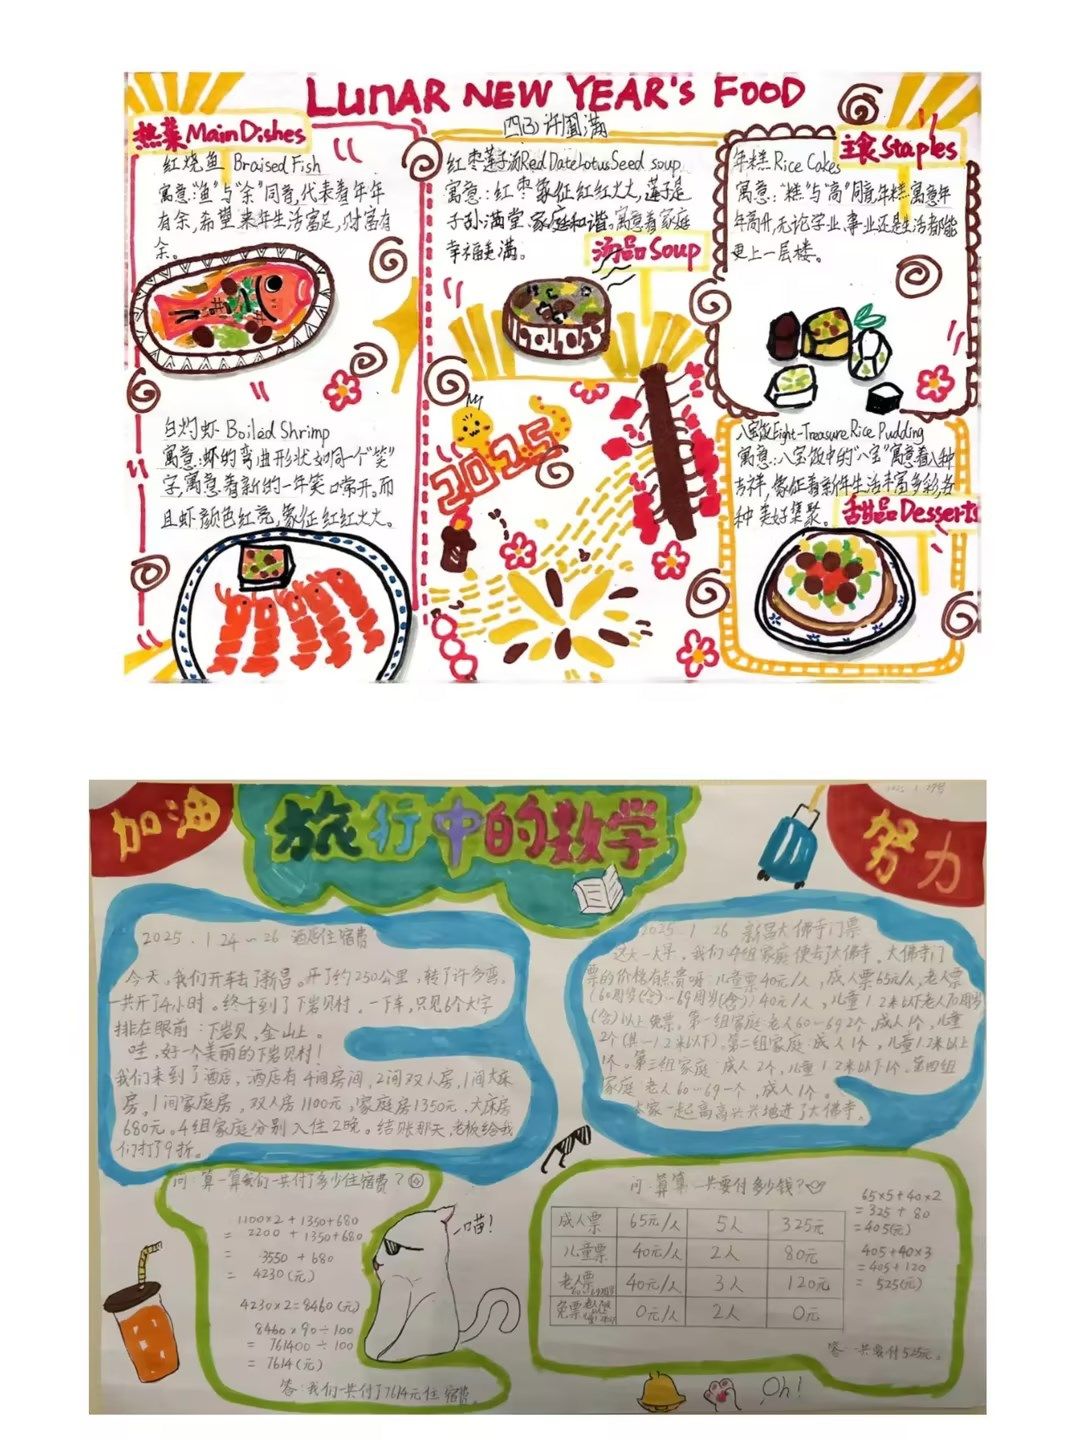 LUNAR NEW YEAR'S FOOD
热菜 Main Dishes
红烧鱼 Braised Fish
寓意:"鱼"与"余"同音,代表着年年
有余,希望来年生活富足,财富有
余。
白灼虾 Boiled Shrimp
寓意:虾的弯曲形状如同一个"笑"
字,寓意着新的一年笑口常开。而
且虾颜色红亮,象征红红火火。
红枣莲子汤Red Date Lotus Seed soup
寓意:红枣象征红红火火,莲子是
子孙满堂、家庭和谐。寓意着家庭
幸福美满。
汤品 Soup
2025
主食 Staples
年糕 Rice Cakes
寓意:"糕"与"高"同音年糕寓意年
年高升,无论学业、事业还是生活都能
更上一层楼。
八宝饭Eight-Treasure Rice Pudding
寓意:八宝饭中的"八宝"寓意着八种
吉祥,象征着新年生活丰富多彩,各
种美好集聚。
甜品 Desserts
加油
旅行中的数学
努力
2025.1.24~26 酒店住宿费
今天,我们开车去了新昌。开了约250公里,转了许多弯,
一共开了4小时。终于到了下岩贝村。一下车,只见6个大字
排在眼前:下岩贝,金山上。
哇,好一个美丽的下岩贝村!
我们来到了酒店,酒店有4间房间,2间双人房,1间大床
房。1间家庭房。双人房1100元,家庭房1350元,大床房
680元。4组家庭分别入住2晚。结账那天,老板给我
们打了9折。
问:算一算我们一共付了多少住宿费?
1100×2+1350+680
= 2200 +1350+680
= 3550 +680
= 4230(元)
4230×2=8460(元)
8460×90÷100
= 761400÷100
= 7614(元)
答:我们一共付了7614元住宿费。
喵!
2025.1 26 新昌大佛寺门票
这天一大早,我们4组家庭便去了大佛寺。大佛寺门
票的价格有点贵呀:儿童票40元/人,成人票65元/人,老人票
(60周岁(含)~69周岁(含))40元/人,儿童1.2米以下老人70周岁
(含)以上免票。第一组家庭:老人60~69 2个,成人1个,儿童
2个(其一1.2米以下)。第二组家庭:成人1个,儿童1.2米以上
1个。第三组家庭:成人2个,儿童1.2米以下1个。第四组
家庭:老人60~69一个,成人1个。
大家一起高高兴兴地进了大佛寺。
问:算算一共要付多少钱?
成人票 65元/人 5人 325元
儿童票 40元/人 2人 80元
老人票 40元/人 3人 120元
免票 0元/人 2人 0元
65×5+40×2
= 325 + 80
= 405(元)
405+40×3
= 405+120
= 525(元)
答:一共要付525元。
Oh!